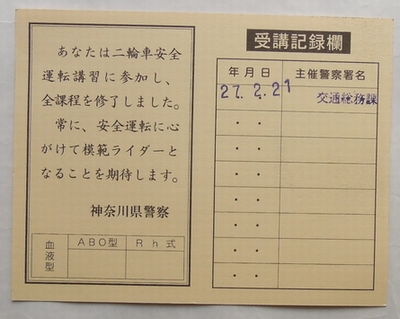 あなたは二輪車安全
運転講習に参加し、
全課程を修了しました。
常に、安全運転に心
がけて模範ライダーと
なることを期待します。
神奈川県警察
血液型
ABO型
Rh式
受講記録欄
年月日
主催警察署名
27.2.21
交通総務課